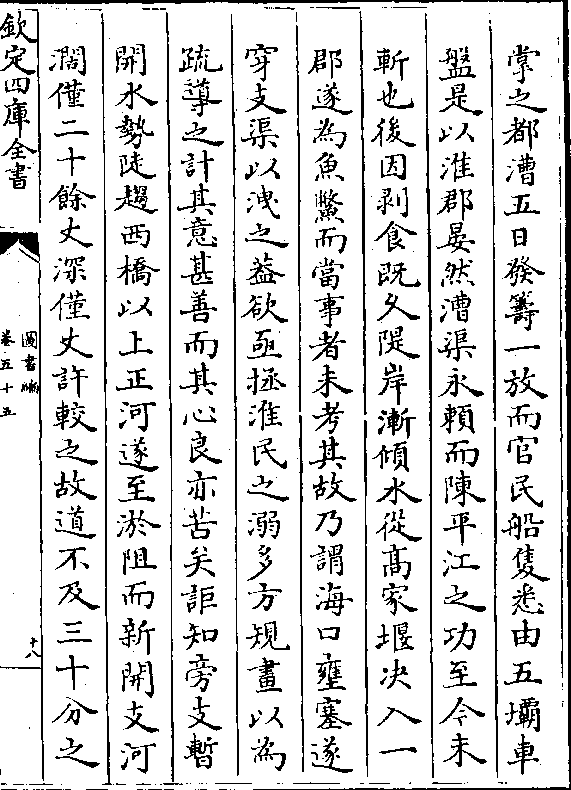 掌之都漕五日發籌一放而官民船隻悉由五壩車
盤是以淮郡晏然漕渠永賴而陳平江之功至今未
斬也後因剥食既久隄岸漸傾水從髙家堰决入一
郡遂為魚鱉而當事者未考其故乃謂海口壅塞遂
穿支渠以洩之葢欲亟拯淮民之溺多方規畫以為
疏導之計其意甚善而其心良亦苦矣詎知旁支暫
開水勢陡趨西橋以上正河遂至淤阻而新開支河
濶僅二十餘丈深僅丈許較之故道不及三十分之
欽定四庫全書
圖書編
卷五十五
十八